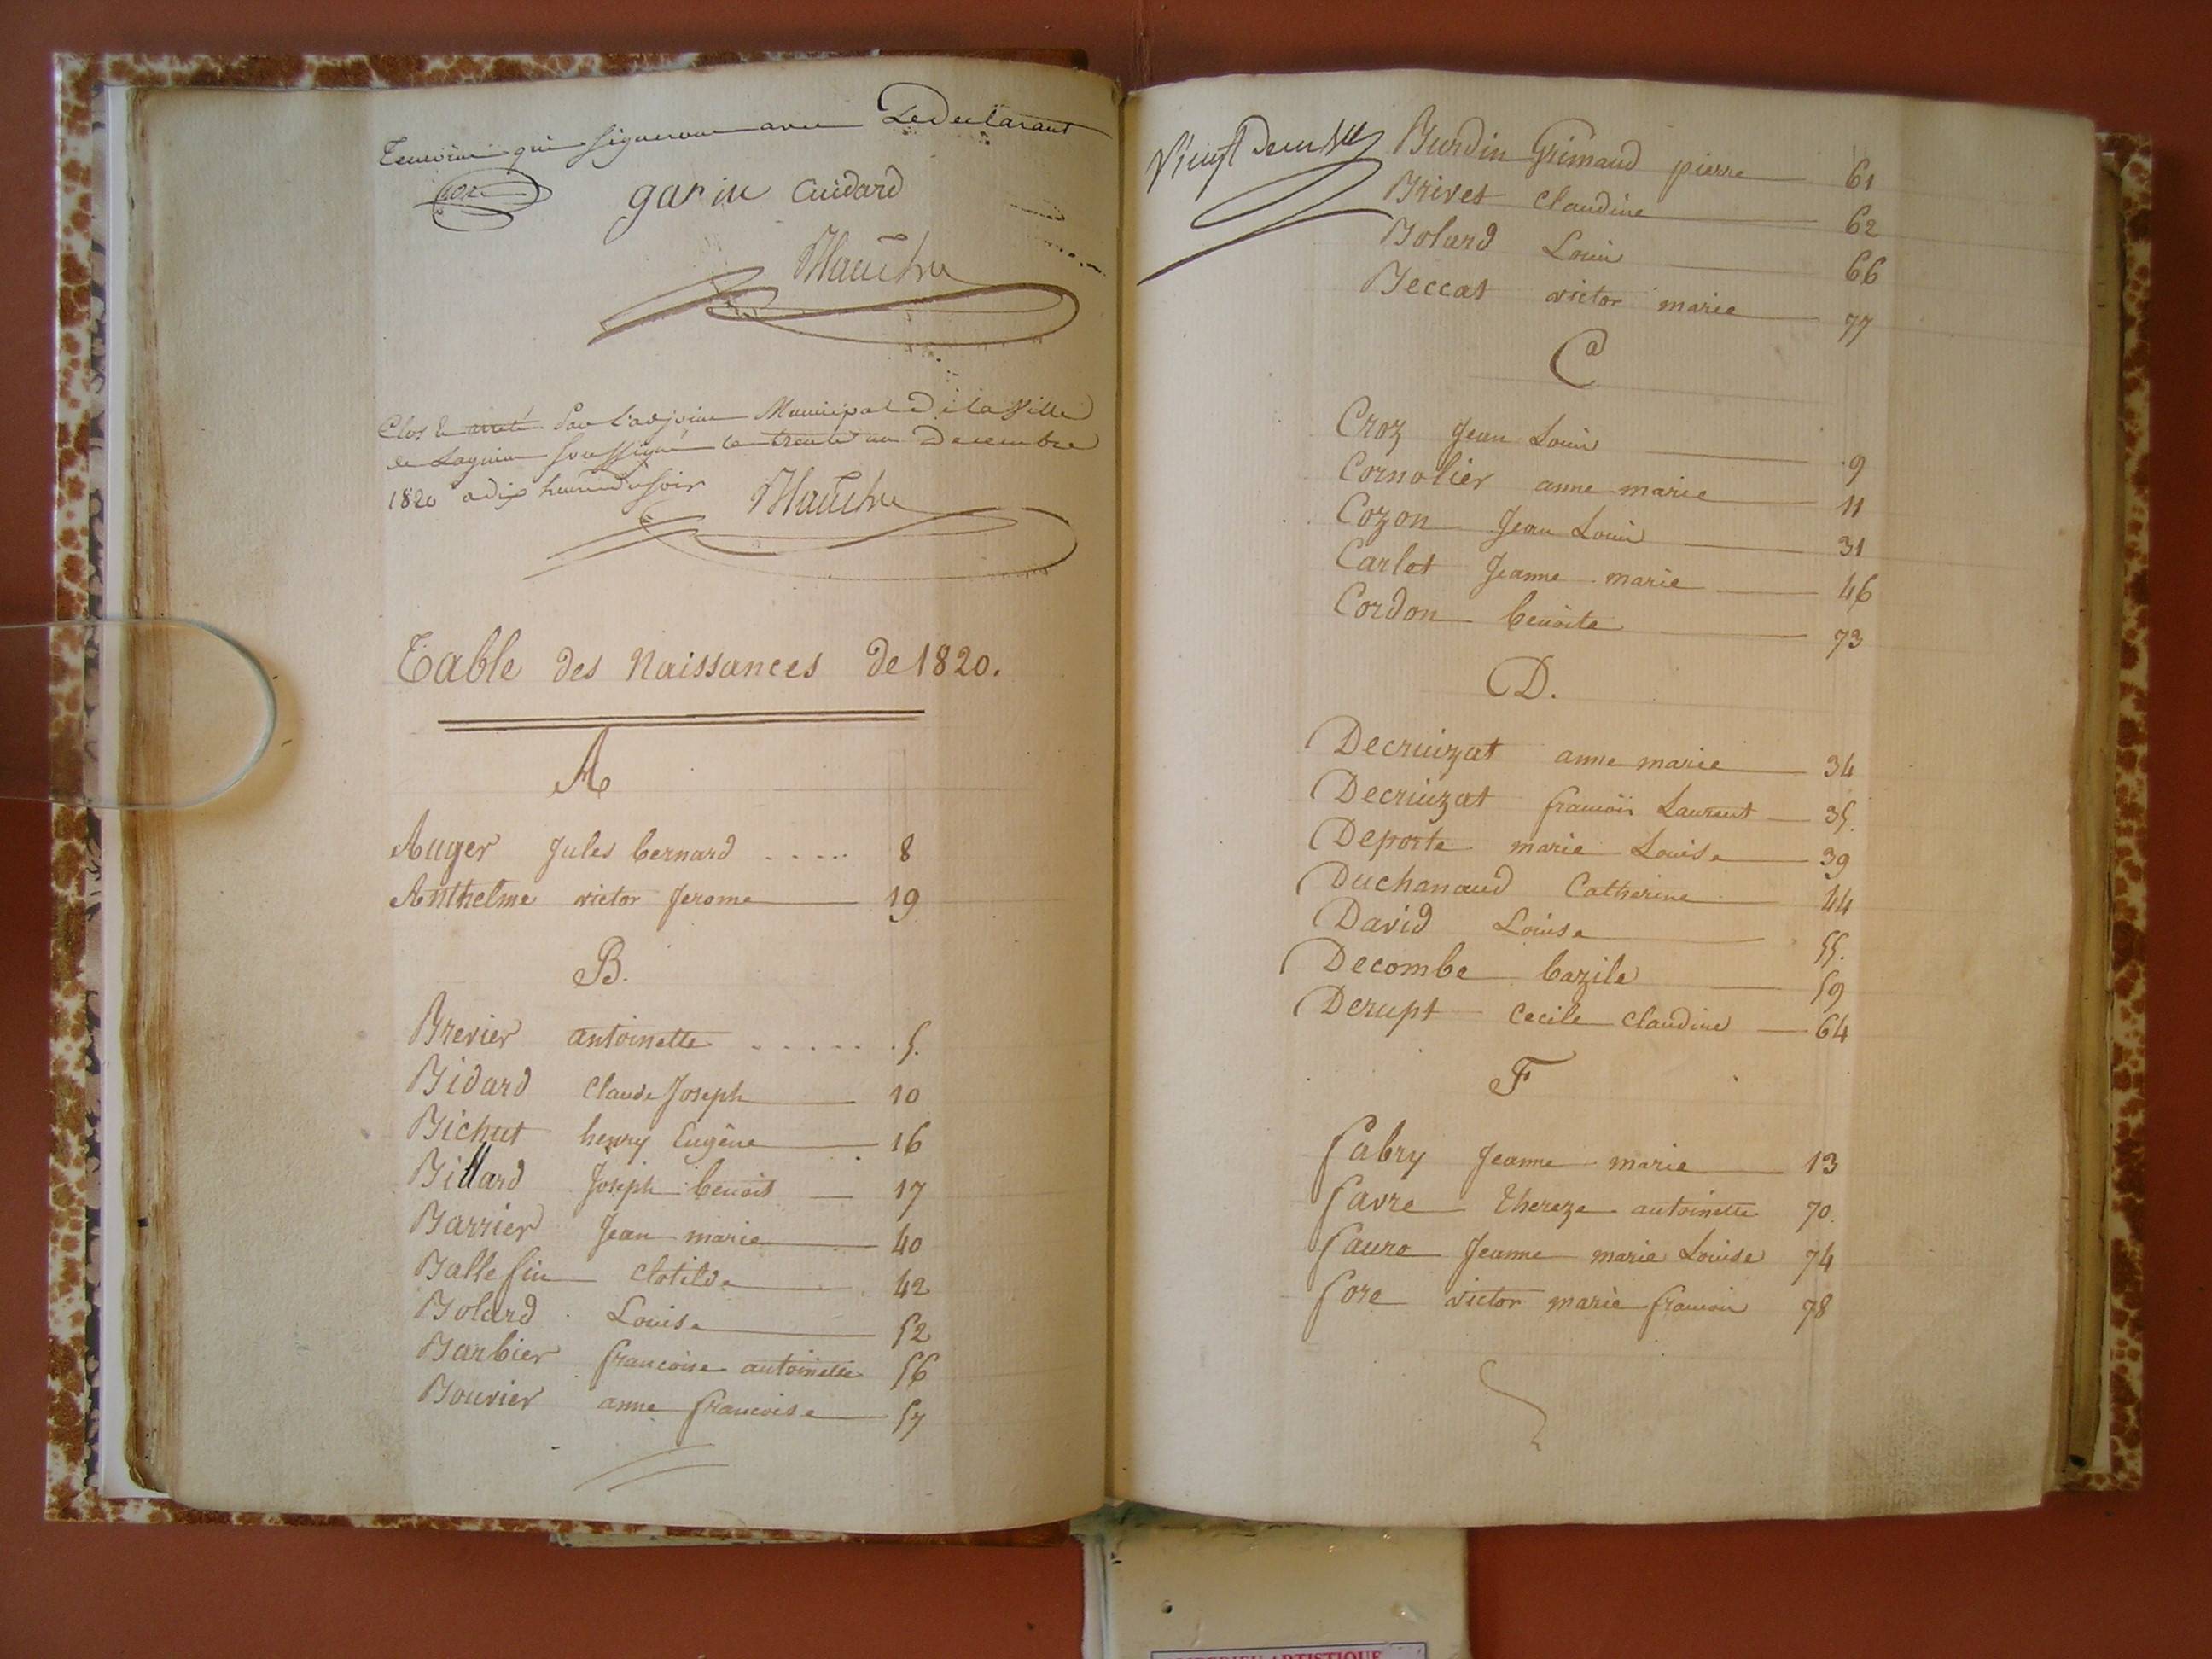 Temoins qui signeront avec Le declarant
gariu Cuidard
Clos & arreté Par l'adjoint Municipal de la Ville
de Lagnieu soussigné le trente un Decembre
1820 a dix heures du soir
Table des Naissances de 1820.
A
Auger Jules bernard ..... 8
Anthelme victor Jerome 19
B.
Brevier antoinette ...... 5.
Bidard Claude Joseph 10
Bichat henry Eugêne 16
Billard Joseph benoit 17
Barrier Jean marie 40
Ballefin Clotilde 42
Bolard Louise 52
Barbier francoise antoinette 56
Bouvier anne francoise 57
Vingt deux
Burdin Grimaud pierre 61
Brivet Claudine 62
Bolard Louis 66
Beccat victor marie 77
C
Croz Jean Louis 9
Cornolier anne marie 11
Cozon Jean Louis 31
Carlet Jeanne marie 46
Cordon benoite 73
D.
Decruizat anne marie 34
Decruizat francois Laurent 35.
Deporte marie Louise 39
Duchanaud Catherine 44
David Louise 55.
Decombe bazile 59
Derupt Cecile Claudine 64
F
fabry Jeanne marie 13
favre thereze antoinette 70
faure Jeanne marie Louise 74
fore victor marie francois 78